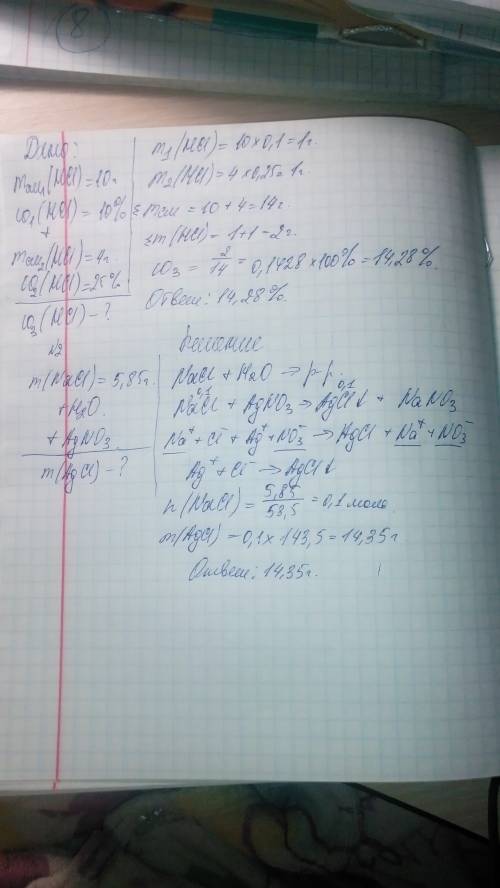 8
Дано:
mсм₁(HCl) = 10 г
ω₁(HCl) = 10%
+
mсм₂(HCl) = 4 г
ω₂(HCl) = 25%
ω₃(HCl) – ?
m₁(HCl) = 10 × 0,1 = 1 г.
m₂(HCl) = 4 × 0,25 = 1 г.
Σ mсм = 10 + 4 = 14 г.
Σ m(HCl) = 1 + 1 = 2 г.
ω₃ = 2/14 = 0,1428 × 100% = 14,28%.
Ответ: 14,28%.
N2
m(NaCl) = 5,85 г.
+ H₂O
+ AgNO₃
m(AgCl) – ?
Решение
NaCl + H₂O → р-р.
0,1 0,1
NaCl + AgNO₃ → AgCl↓ + NaNO₃
Na⁺ + Cl⁻ + Ag⁺ + NO₃⁻ → AgCl + Na⁺ + NO₃⁻
Ag⁺ + Cl⁻ → AgCl↓
n(NaCl) = 5,85/53,5 = 0,1 моль.
m(AgCl) = 0,1 × 143,5 = 14,35 г
Ответ: 14,35 г.